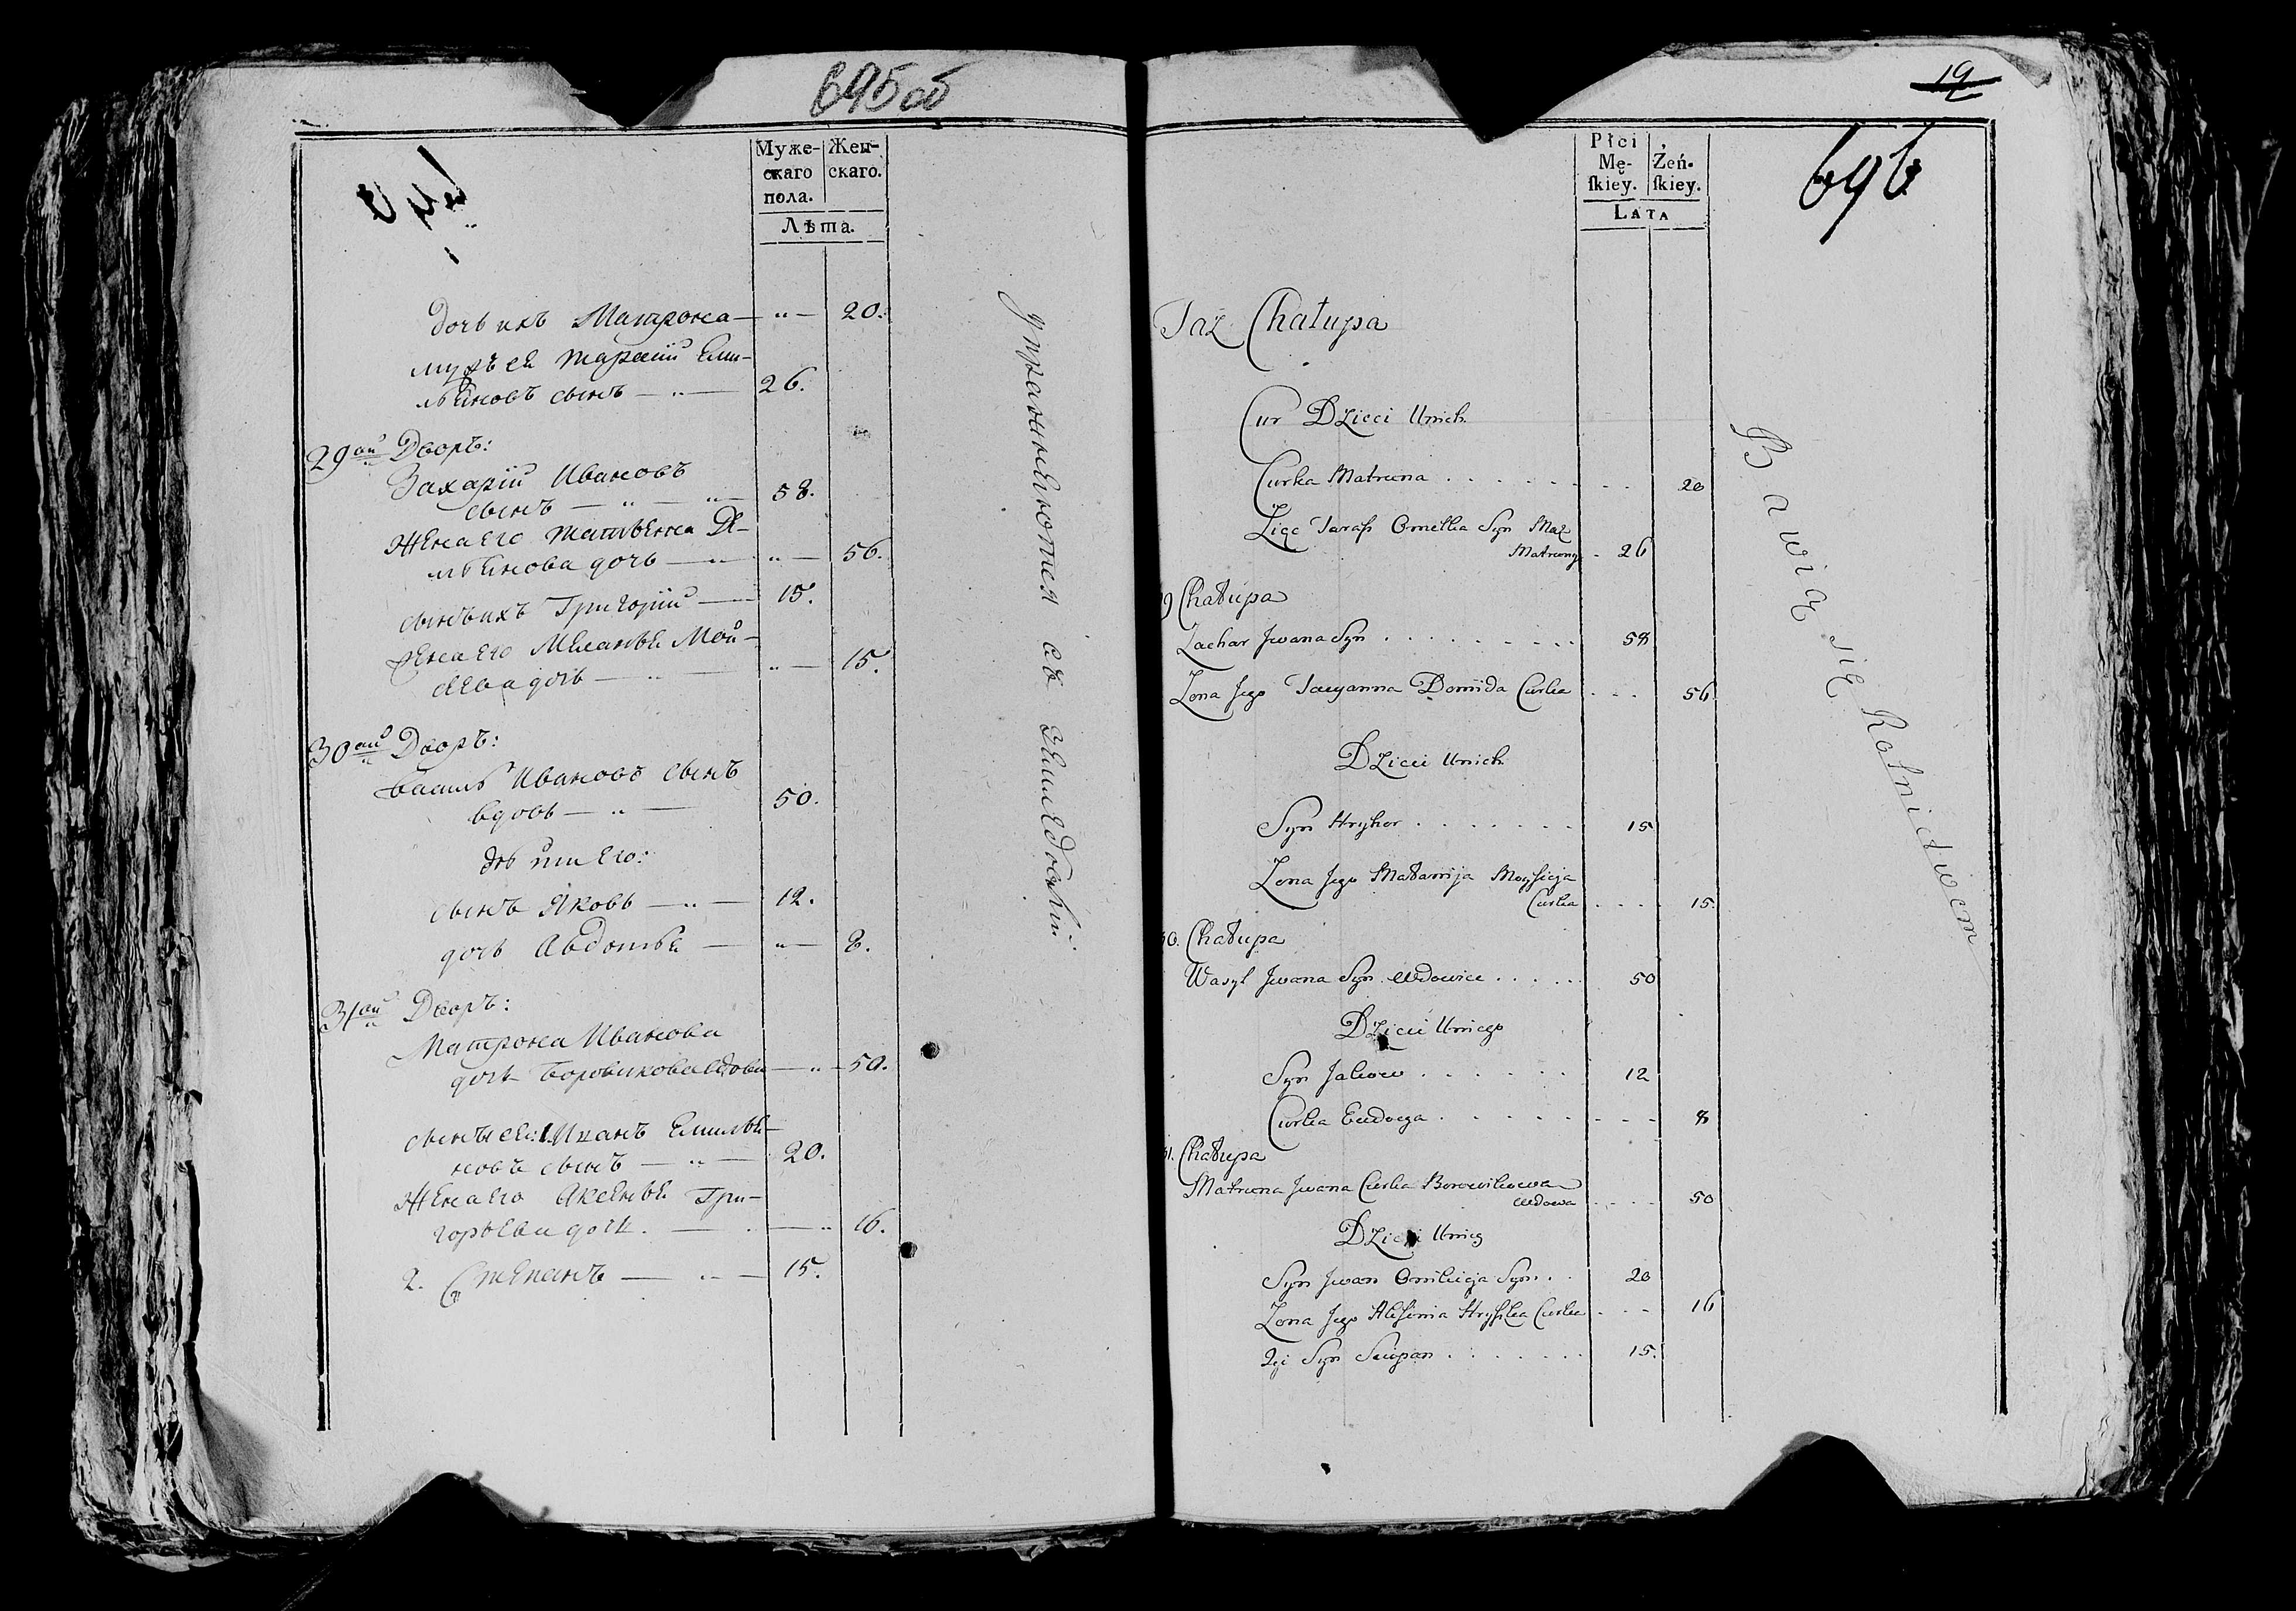 695 об
Муже-
скаго
пола.
Жен-
скаго.
Лѣта.
дочь ихъ Матрона — „ — 20.
мужъ ея Тарасій Еми-
льяновъ сынъ — „ — 26.
29ый Дворъ:
Захарій Ивановъ
сынъ — „ — „ — 58.
Жена его Татьянна Де-
мьянова дочь — „ — „ — 56.
сынъ ихъ Григорій — 15.
Жена его Меланья Мой-
сеева дочь — „ — „ — 15.
30ый Дворъ:
Василь Ивановъ сынъ
вдовъ — „ — 50.
дѣти его:
сынъ Яковъ — „ — 12.
дочь Авдотья — „ — 8.
31ый Дворъ:
Матрона Иванова
дочь Боровикова вдова — „ — 50.
сыны ея: 1. Иванъ Емилья-
новъ сынъ — „ — 20.
Жена его Аксенья Гри-
горьева дочь. — „ 16.
2. Степанъ — „ — 15.
упражняются въ земледѣліи.
19
696
Płci
Mę-
skiey.
Żeń-
skiey.
Lata
Taż Chałupa
Cur Dzieci Unich
Curka Matruna . . . . . . . . 20
Zięc Tarass Omelka Syn Mąż
Matruny - 26
9 Chałupa
Zachar Jwana Syn . . . . . . . . . 58
Zona Jego Tacyanna Domida Curka . . . 56
Dzieci Unich
Syn Hryhor . . . . . . . 15
Zona Jego Małanija Moysieja
Curka . . . . 15.
30. Chałupa
Wasyl Jwana Syn Wdowiec . . . . . 50
Dzieci Uniego
Syn Jakow . . . . . . 12
Curka Eudocya . . . . . . . . . 8
31. Chałupa
Matruna Jwana Curka Borowikowa
Wdowa . . . . 50
Dzieci Uniey
Syn Jwan Omilieja Syn . . 20
Zona Jego Alesinia Hryszka Curka . . . 16
2gi Syn Sciepan . . . . . . . 15.
Bawią się Rolnictwem